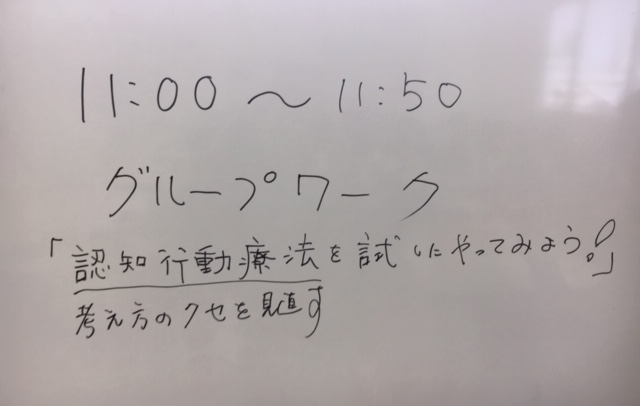 11:00 〜 11:50
グループワーク
「認知行動療法を試しにやってみよう!」
考え方のクセを見直す